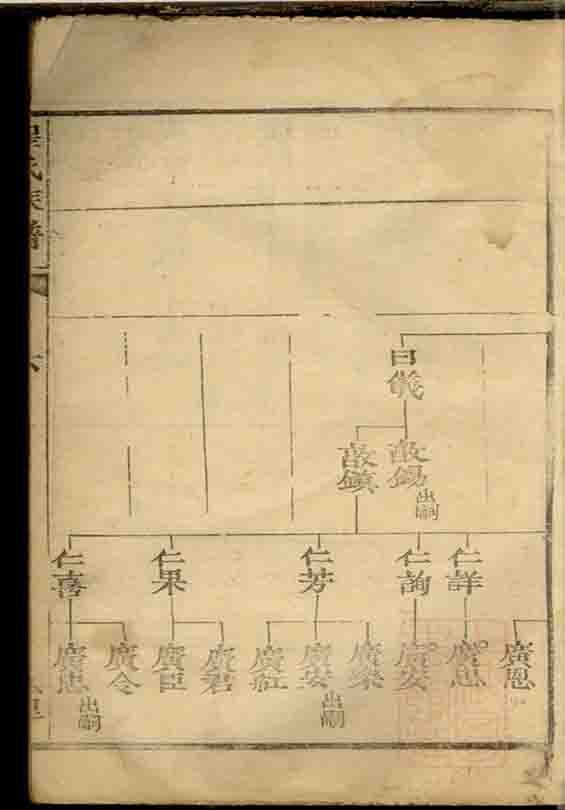 曰儀
啟錫 出嗣
啟鎮
仁詳
仁詢
仁芳
仁果
仁喜
廣恩
廣忠
廣安
廣樂
廣安 出嗣
廣君
廣臣
廣令
廣忠 出嗣
氏族譜